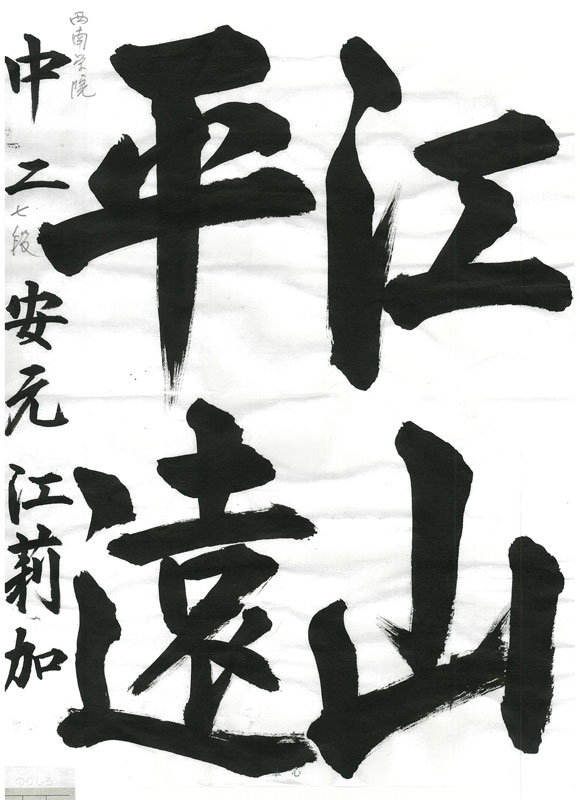 江山
平遠
西南学院
中二 安元 江莉加
七段
のりしろ